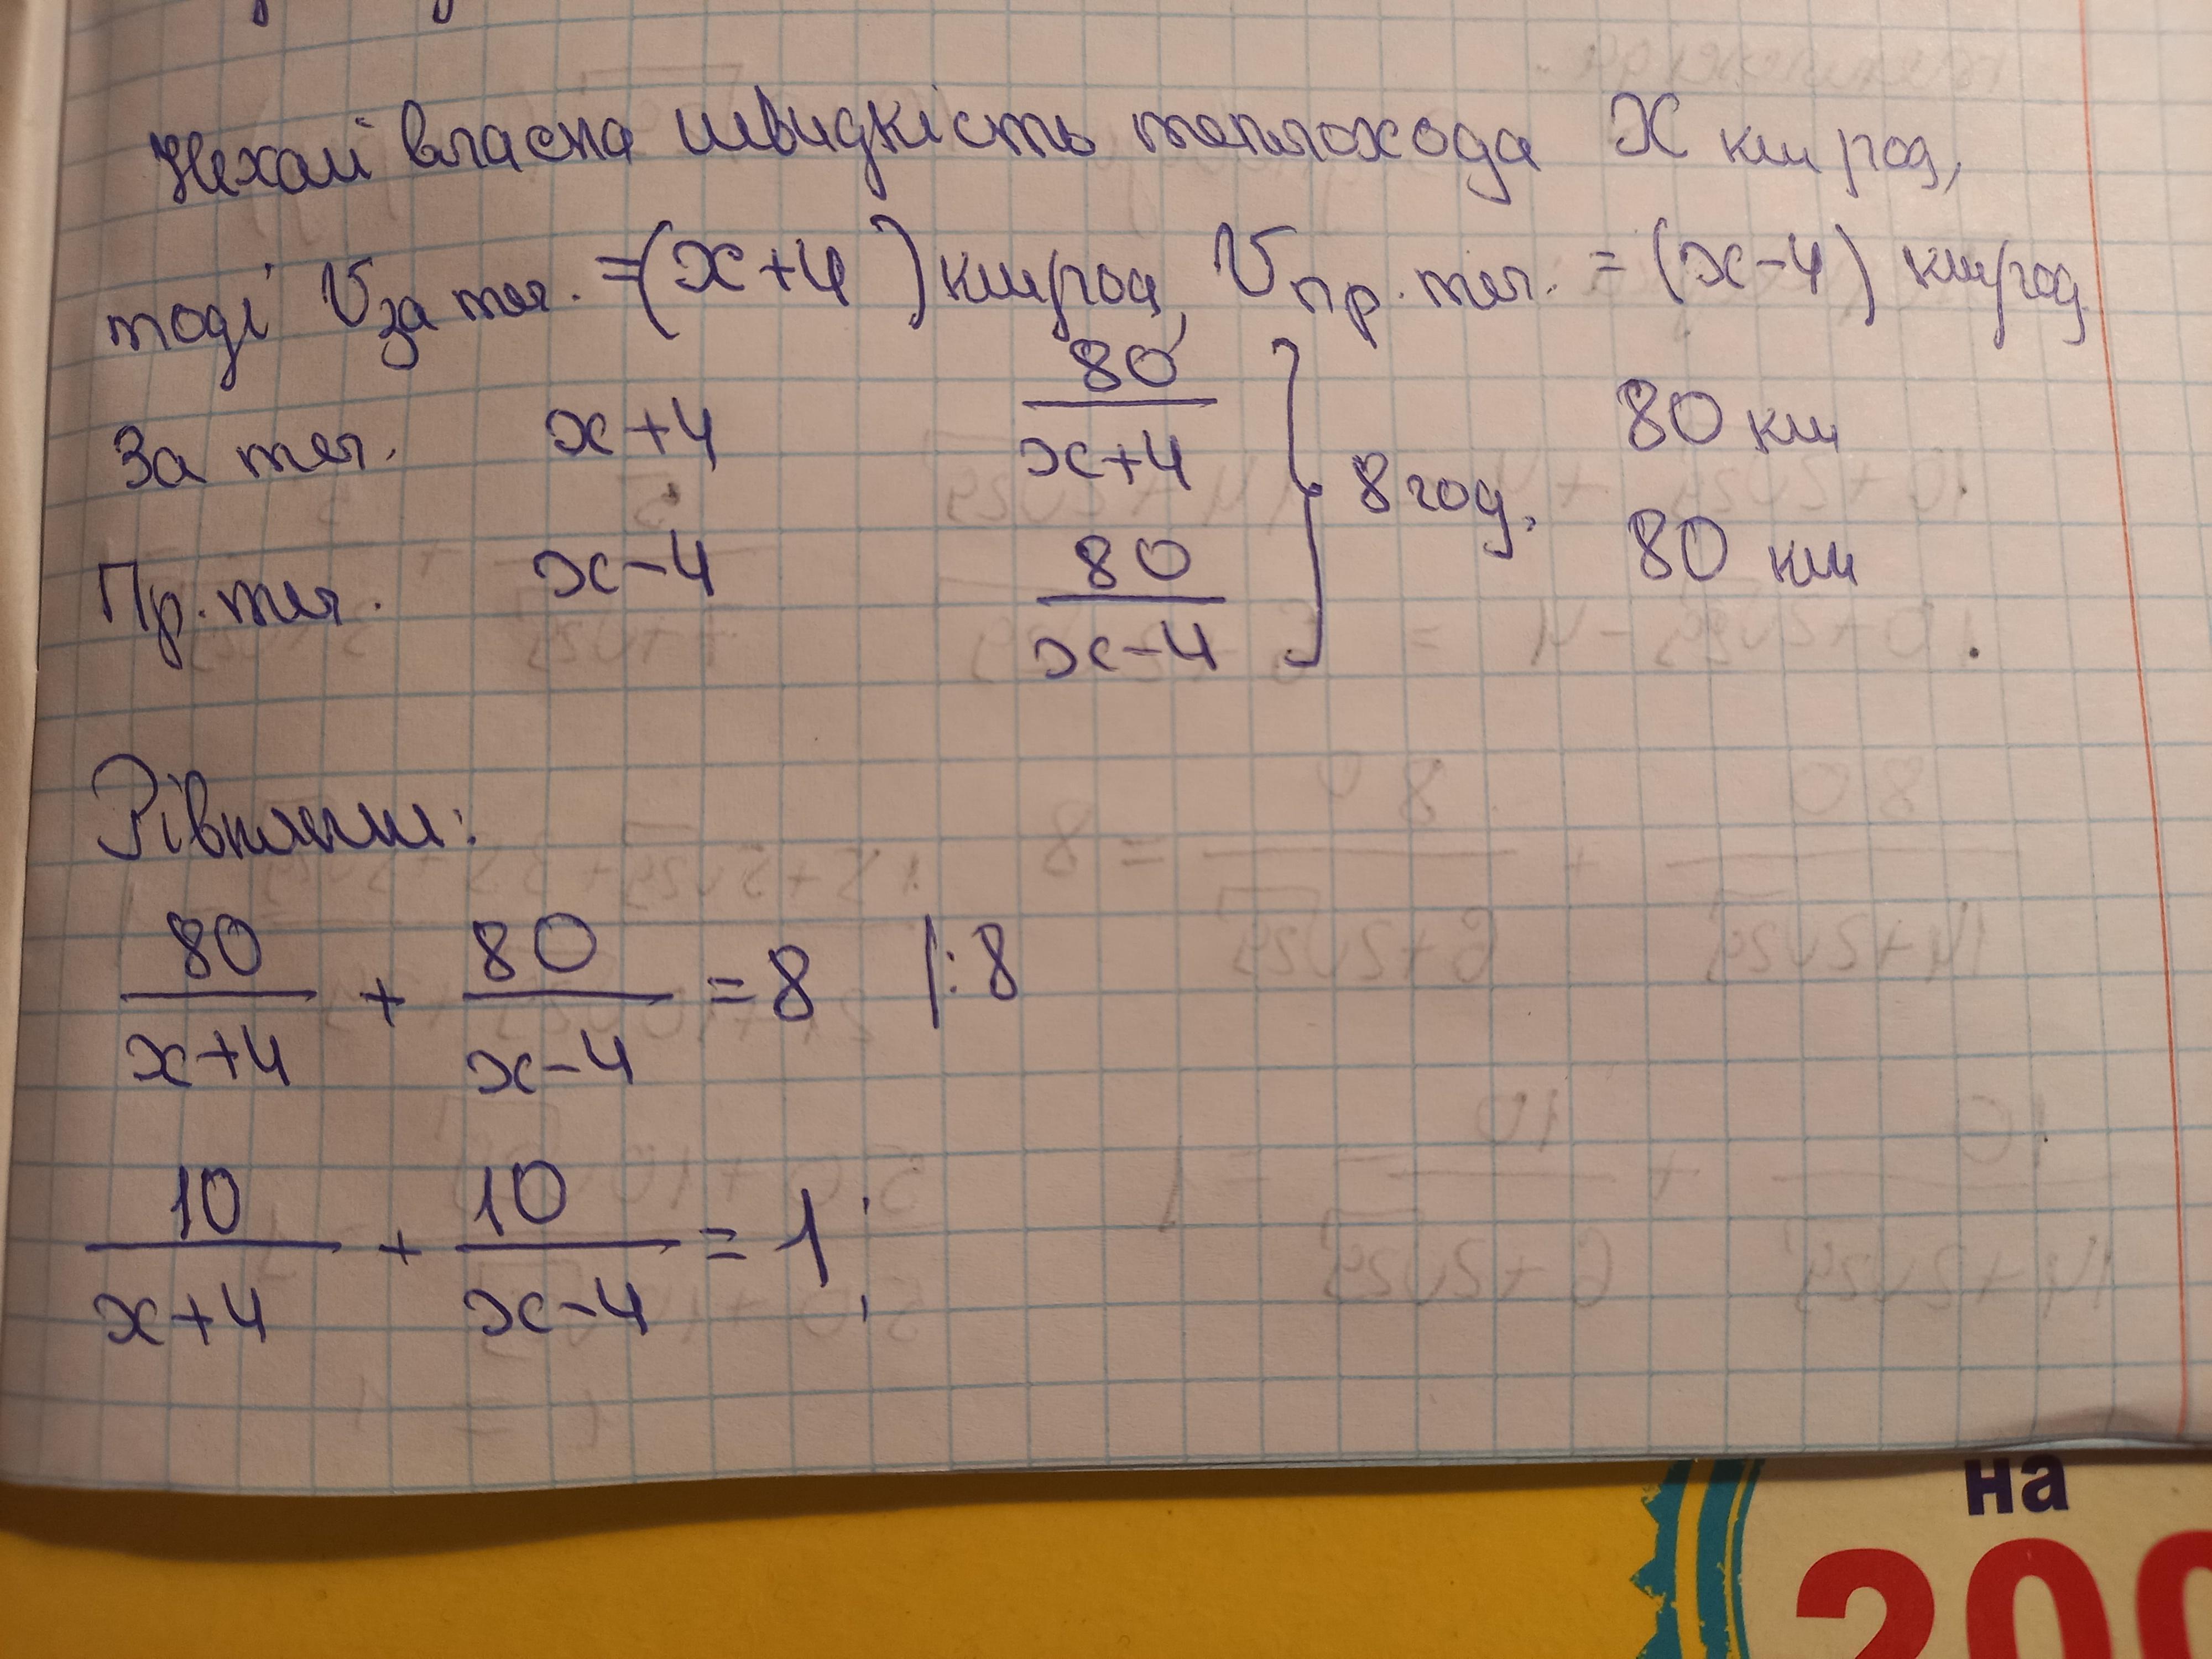 Нехай власна швидкість теплохода x км/год,
тоді Vза теч. = (x+4) км/год, Vпр. теч. = (x-4) км/год
За теч. x+4 80/(x+4) 80 км
8 год.
Пр. теч. x-4 80/(x-4) 80 км
Рівняння:
80/(x+4) + 80/(x-4) = 8 |:8
10/(x+4) + 10/(x-4) = 1;
на
200